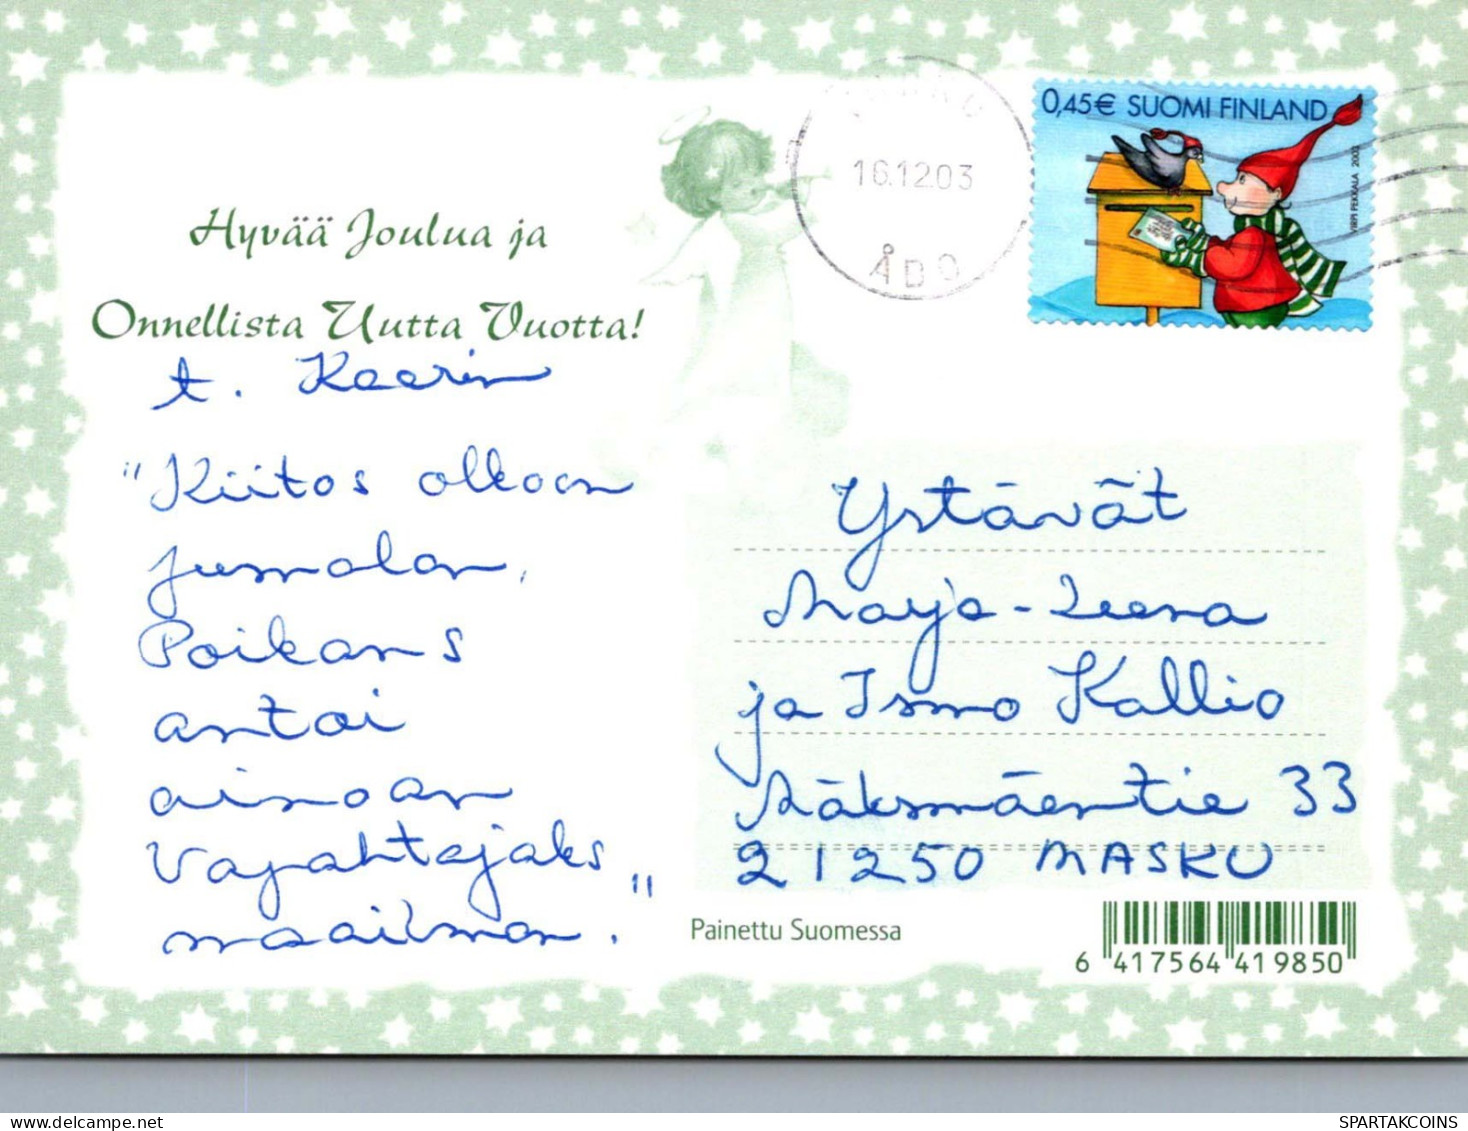 Hyvää Joulua ja
Onnellista Uutta Vuotta!
t. Kaarin
"Kiitos olkoon
Jumalan,
Poikans
antoi
ainoan
Vapahtajaks
maailman."
TURKU
16.12.03
ÅBO
0,45€ SUOMI FINLAND
VIRPI PEKKALA 2003
Ystävät
Marja-Leena
ja Ismo Kallio
Mäksmäentie 33
21250 MASKU
Painettu Suomessa
6 417564 419850
SPARTAKCOINS